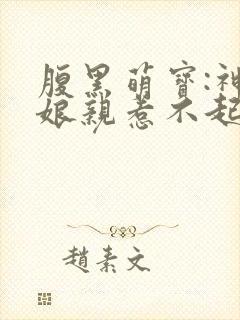 腹黑萌寶:神
娘親惹不起
趙素文